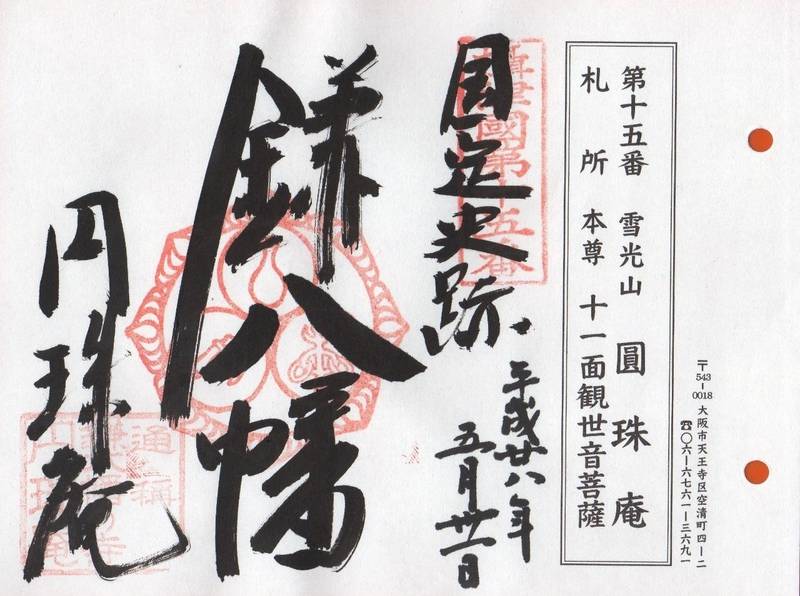 〒543-0018 大阪市天王寺区空清町四ー二
☎〇六ー六七六一ー三六九一
第十五番 雪光山 圓珠庵
札所 本尊 十一面観世音菩薩
國第十五番
国定史跡
平成廿八年
五月卅一日
鎌八幡
円珠庵
通称